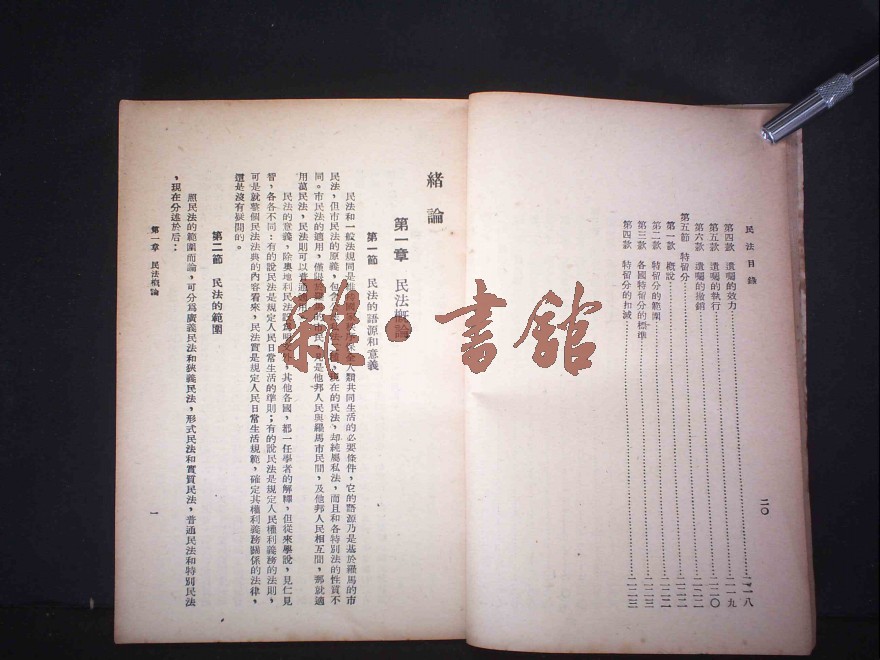 民法目錄
第四款 遺囑的效力……二一八
第五款 遺囑的執行……二一九
第六款 遺囑的撤銷……二二〇
第五節 特留分……二二一
第一款 概說……二二二
第二款 特留分的範圍……二二二
第三款 各國特留分的標準……二二三
第四款 特留分的扣減……二二三
二〇
緒論
第一章 民法概論
第一節 民法的語源和意義
民法和一般法規同是維 人類共同生活的必要條件，它的語源乃是基於羅馬的市
民法，但市民法的原義，包含 現在的民法，却純屬私法，而且和各特別法的性質不
同。市民法的適用，僅限於羅馬的市民，凡是他邦人民與羅馬市民間，及他邦人民相互間，都就適
用萬民法，民法則可以普通適用
民法的意義，除奧地利民法設有明文外，其他各國，都一任學者的解釋，但從來學說，見仁見
智，各各不同：有的說民法是規定人民日常生活的準則；有的說民法是規定人民權利義務的法則，
可是就整個民法法典的內容看來，民法實是規定人民日常生活規範，確定其權利義務關係的法律，
還是沒有疑問的。
第二節 民法的範圍
照民法的範圍而論，可分爲廣義民法和狹義民法，形式民法和實質民法，普通民法和特別民法
，現在分述於后：
第一章 民法概論
一
雜·書舘